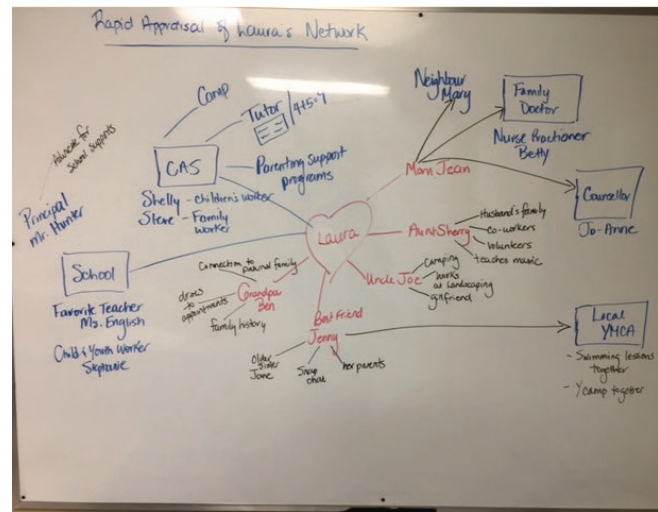 Rapid Appraisal of Laura's Network
Camp
Tutor
CAS
Parenting support
programs
Shelly - Children's worker
Steve - Family
worker
Advocate for
School Supports
Principal
Mr. Hunter
School
Favorite Teacher
Ms. English
Child & Youth Worker
Stephanie
Neighbour
Mary
Family
Doctor
Nurse Practioner
Betty
Mom Jean
Counsellor
Jo-Anne
Laura
Aunt Sherry
Husband's family
co-workers
Volunteers
teaches music
Uncle Joe
Camping
works
at landscaping
girlfriend
Connection to
paternal family
Grandpa
Ben
drives
to
appointments
family history
Best Friend
Jenny
Older
Sister
Jane
Snap
chat
her parents
Local
YMCA
- Swimming lessons
together
- Y camp together